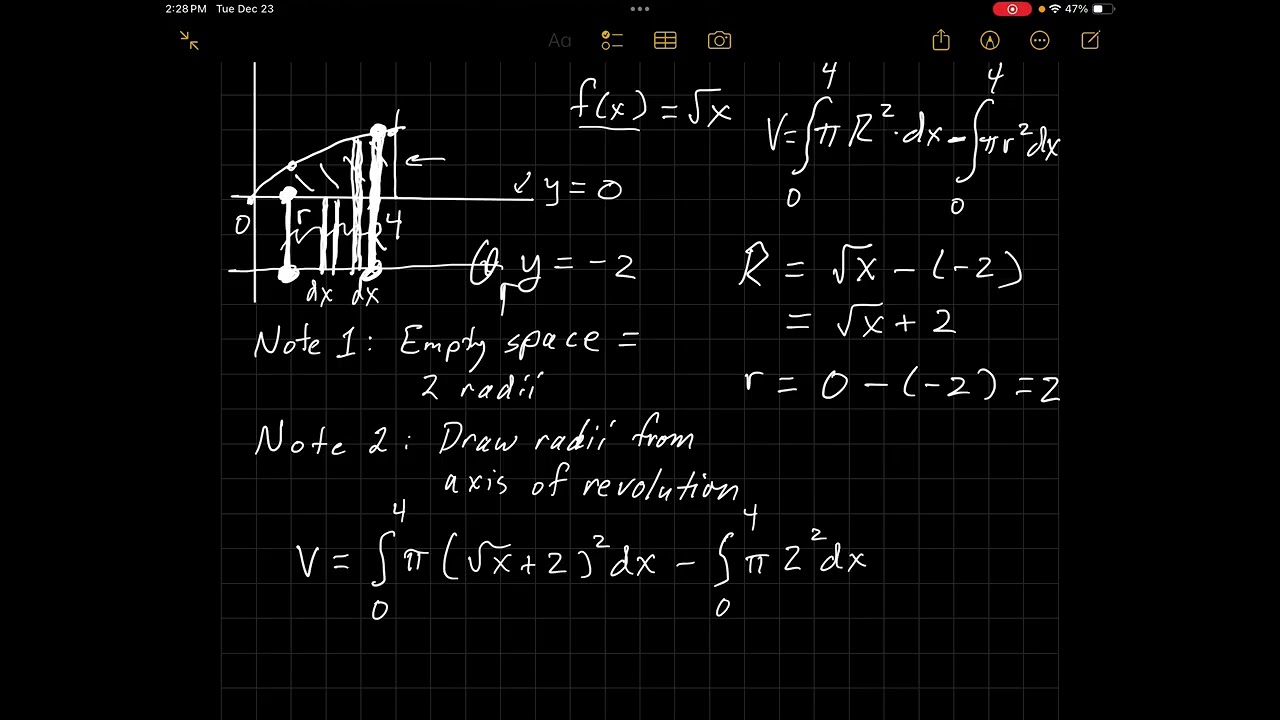 2:28 PM Tue Dec 23
47%
Aa
f(x) = √x
V = ∫₀⁴ π R² · dx - ∫₀⁴ π r² dx
y = 0
0
r
4
y = -2
dx dx
R = √x - (-2)
= √x + 2
r = 0 - (-2) = 2
Note 1: Empty space =
2 radii
Note 2: Draw radii from
axis of revolution
V = ∫₀⁴ π (√x + 2)² dx - ∫₀⁴ π 2² dx